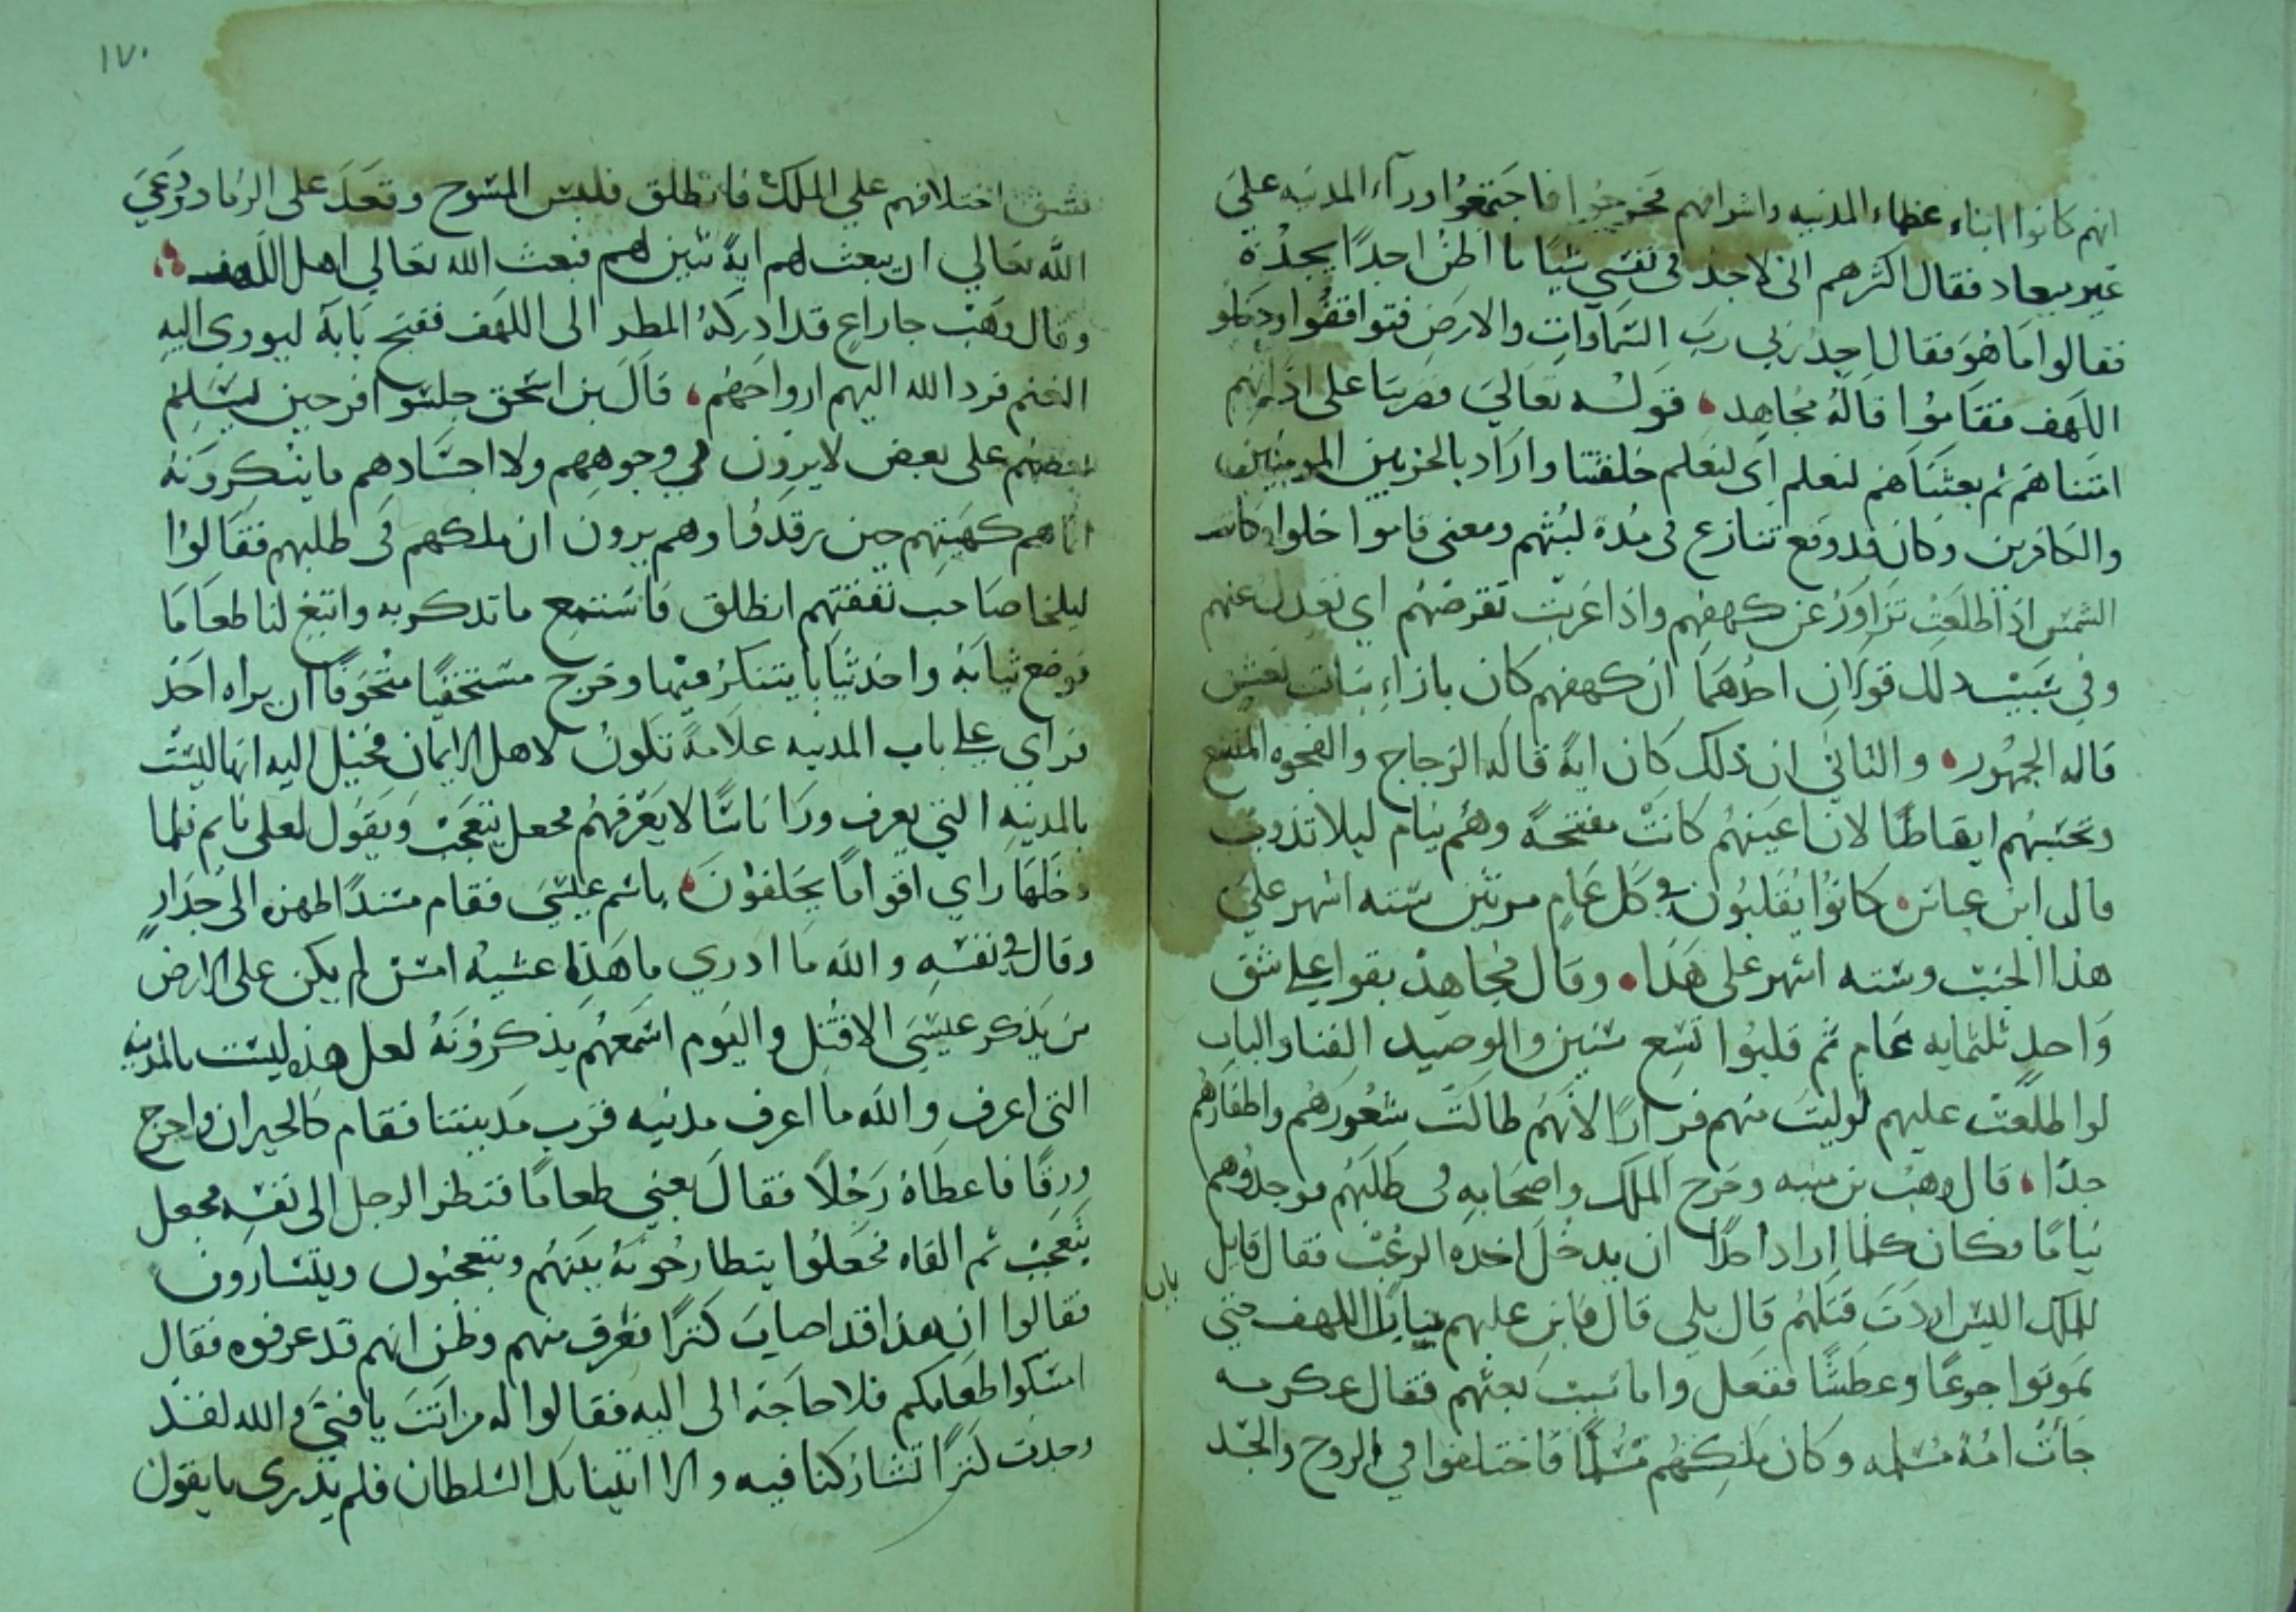 انهم كانوا ابناء عظماء المدينه واشرافهم فخرجوا فاجتمعوا وراء المدينه على
غير ميعاد فقال اكثرهم اني لاجد في نفسي شيًا ما اظن احدًا يجدة
فقالوا ما هو فقال اجد ربي رب السماوات والارض فتوافقوا ودخلو
الكهف فقاموا قاله مجاهد قوله تعالي فضربنا على اذانهم
امتناهم ثم بعثناهم لنعلم اي لنعلم خلقنا واراد بالحزبين المومنين
والكافرين وكان قد وقع تنازع في مدة لبثهم ومعنى قاموا خلوا وكانت
الشمس اذا طلعت تزاور عن كهفهم واذا غربت تقرضهم اي تعدل عنهم
وفي سبب ذلك قولان احدهما ان كهفهم كان بازاء بنات نعش
قاله الجمهور والثاني ان ذلك كان اية قاله الزجاج والفجوه المتسع
وتحسبهم ايقاظًا لان اعينهم كانت مفتحة وهم نيام ليلا تذوب
قال ابن عباس كانوا يقلبون في كل عام مرتين سته اشهر على
هذا الجنب وسته اشهر على هذا وقال مجاهد بقوا على شق
واحد ثلثمايه عام ثم قلبوا تسع سنين والوصيد الفنا والباب
لو اطلعت عليهم لوليت منهم فرارًا لانهم طالت شعورهم واظفارهم
جدًا قال وهب بن منبه وخرج الملك واصحابه في طلبهم فوجدوهم
نيامًا فكان كلما اراد احدًا ان يدخل اخذه الرعب فقال قايل
للملك اليس اردت قتلهم قال بلى قال فابن عليهم باب الكهف حتي
باب
يموتوا جوعًا وعطشًا ففعل واما سبب بعثهم فقال عكرمه
جأت امة مسلمه وكان ملكهم مسلمًا فاختلفوا في الروح والجسد
١٧٠
فشق اختلافهم على الملك فانطلق فلبس المسوح وقعد على الرماد ودعى
الله تعالي ان يبعث لهم اية تبين لهم فبعث الله تعالي اهل الكهف
وقال وهب جا راع قد ادركه المطر الى الكهف ففتح بابة ليووى اليه
الغنم فرد الله اليهم ارواحهم قال بن اسحق جلسوا فرحين ليسلم
بعضهم على بعض لا يرون في وجوههم ولا اجسادهم ما ينكرونه
انما هم كهيتهم حين رقدوا وهم يرون ان ملكهم في طلبهم فقالوا
ليلخا صاحب نفقتهم انطلق فاستمع ما تذكر به وابتغ لنا طعاما
فوضع ثيابه واخذ ثيابا يتنكر فيها وخرج مستخفيًا متخوفًا ان يراه احد
فراى على باب المدينه علامة تكون لاهل الايمان فخيل اليه انها ليست
بالمدينه التي يعرف وراى ناسًا لا يعرفهم فجعل يتعجب ويقول لعلى نايم فلما
دخلها راي اقوامًا يحلفون باسم عيسى فقام مسندًا ظهره الى جدار
وقال في نفسه والله ما ادري ما هذا عشيه امس لم يكن على الارض
من يذكر عيسى الا قتل واليوم اسمعهم يذكرونه لعل هذه ليست بالمدينه
التى اعرف والله ما اعرف مدنيه قرب مدينتنا فقام كالحيران واخرج
ورقًا فاعطاه رجلًا فقال بعني طعامًا فنظر الرجل الى نقشه فجعل
يتعجب ثم القاه فجعلوا يتطارحونه بينهم ويتعجبون ويتشارون
فقالوا ان هذا قد اصاب كنزًا ففرق منهم وظن انهم قد عرفوه فقال
امسكوا طعامكم فلا حاجة الى اليه فقالوا له من انت يا فتى والله لقد
وجدت كنزًا تشاركنا فيه والا اتينا بك السلطان فلم يدرى ما يقول